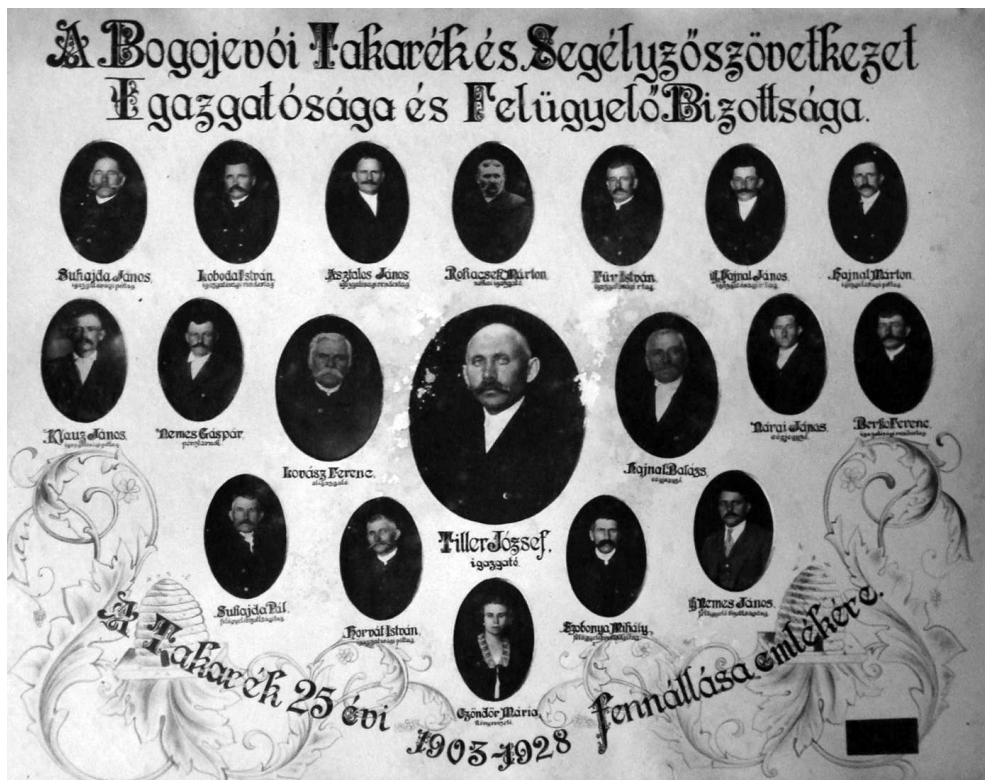 A Bogojevói Takarék és Segélyzőszövetkezet
Igazgatósága és Felügyelő Bizottsága.
Suhajda János.
igazgatósági póttag
Loboda István.
igazgatósági rendestag
Asztalos János
igazgatósági rendestag
Rokacsek Márton
Für István.
igazgatósági r. tag
Hajnal János.
igazgatósági r. tag
Hajnal Márton.
igazgatósági r. tag
Klauz János.
igazgatósági póttag
Nemes Gáspár.
pénztárnok
Kovász Ferenc.
aligazgató
Hajnal Balázs.
Nárai János.
Berko Ferenc.
igazgatósági rendestag
Tiller József.
igazgató
Suhajda Pál.
felügyelő bizottsági tag
Horvát István.
igazgatósági póttag
Szobonya Mihály.
felügyelő bizottsági tag
Nemes János.
felügyelő bizottsági tag
Czöndör Mária.
könyvvezető
A Takarék 25 évi
fennállása emlékére.
1903-1928